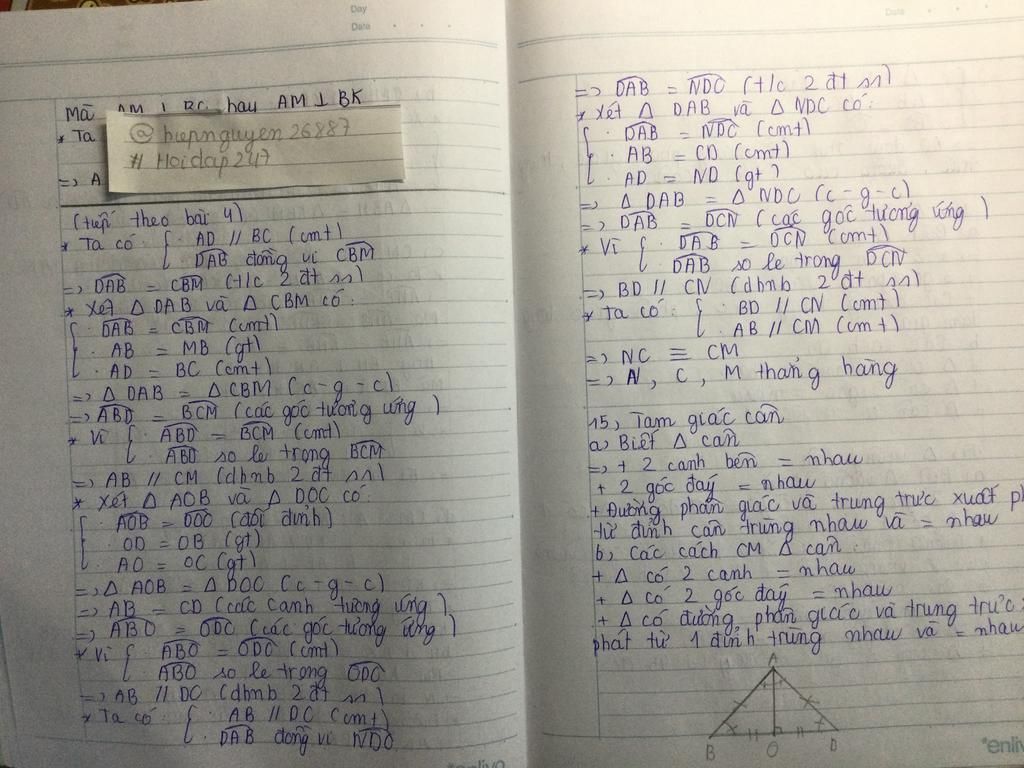 Day
Date
Mà AM ⊥ BC hay AM ⊥ BK
* Ta
@hiepnguyen26887
# Hoidap247
=> A
(tiếp theo bài 4)
* Ta có { . AD // BC (cmt)
. DAB đồng vị CBM
=> DAB = CBM (t/c 2 đt ss)
* Xét △ DAB và △ CBM có:
{ . DAB = CBM (cmt)
. AB = MB (gt)
. AD = BC (cmt)
=> △ DAB = △ CBM (c-g-c)
=> ABD = BCM (các góc tương ứng)
* Vì { . ABD = BCM (cmt)
. ABD so le trong BCM
=> AB // CM (dhnb 2 đt ss)
* Xét △ AOB và △ DOC có:
{ . AOB = DOC (đối đỉnh)
. OD = OB (gt)
. AO = OC (gt)
=> △ AOB = △ DOC (c-g-c)
=> AB = CD (các cạnh tương ứng)
=> ABO = ODC (các góc tương ứng)
* Vì { . ABO = ODC (cmt)
. ABO so le trong ODC
=> AB // DC (dhnb 2 đt ss)
* Ta có { . AB // DC (cmt)
. DAB đồng vị NDO
enlivo
Date
=> DAB = NDC (t/c 2 đt ss)
* Xét △ DAB và △ NDC có:
{ . DAB = NDC (cmt)
. AB = CD (cmt)
. AD = ND (gt)
=> △ DAB = △ NDC (c-g-c)
=> DAB = DCN (các góc tương ứng)
* Vì { . DAB = DCN (cmt)
. DAB so le trong DCN
=> BD // CN (dhnb 2 đt ss)
* Ta có { . BD // CN (cmt)
. AB // CM (cmt)
=> NC ≡ CM
=> N, C, M thẳng hàng
15, Tam giác cân
a, Biết △ cân
=> + 2 cạnh bên = nhau
+ 2 góc đáy = nhau
+ Đường phân giác và trung trực xuất p
từ đỉnh cân trùng nhau và = nhau
b, Các cách CM △ cân:
+ △ có 2 cạnh = nhau
+ △ có 2 góc đáy = nhau
+ △ có đường phân giác và trung trực
phát từ 1 đỉnh trùng nhau và = nhau
A
B O D
enliv